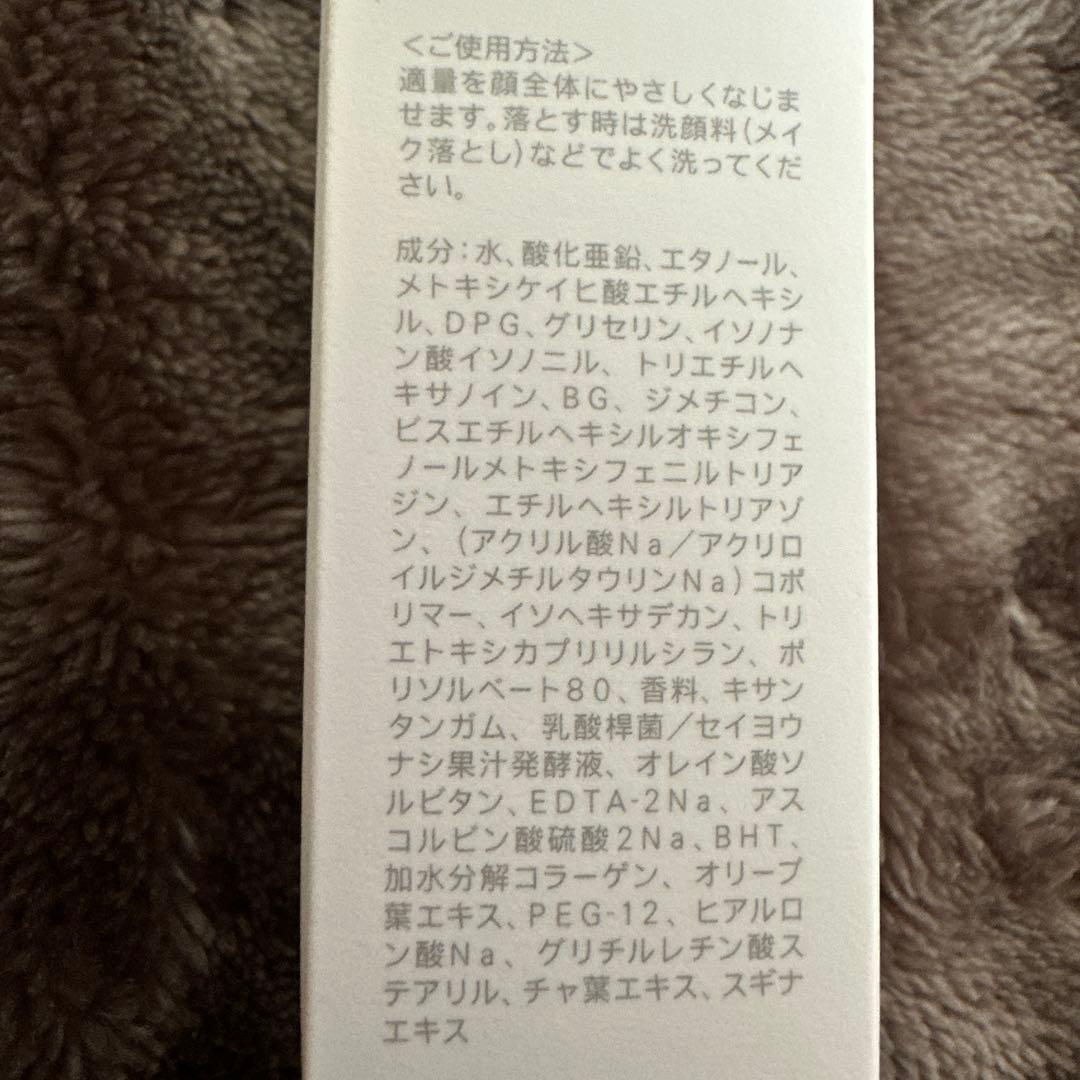 ＜ご使用方法＞
適量を顔全体にやさしくなじま
せます。落とす時は洗顔料（メイ
ク落とし）などでよく洗ってくだ
さい。
成分：水、酸化亜鉛、エタノール、
メトキシケイヒ酸エチルヘキシ
ル、DPG、グリセリン、イソノナ
ン酸イソノニル、トリエチルヘ
キサノイン、BG、ジメチコン、
ビスエチルヘキシルオキシフェ
ノールメトキシフェニルトリア
ジン、エチルヘキシルトリアゾ
ン、（アクリル酸Na／アクリロ
イルジメチルタウリンNa）コポ
リマー、イソヘキサデカン、トリ
エトキシカプリリルシラン、ポ
リソルベート80、香料、キサン
タンガム、乳酸桿菌／セイヨウ
ナシ果汁発酵液、オレイン酸ソ
ルビタン、EDTA-2Na、アス
コルビン酸硫酸2Na、BHT、
加水分解コラーゲン、オリーブ
葉エキス、PEG-12、ヒアルロ
ン酸Na、グリチルレチン酸ス
テアリル、チャ葉エキス、スギナ
エキス